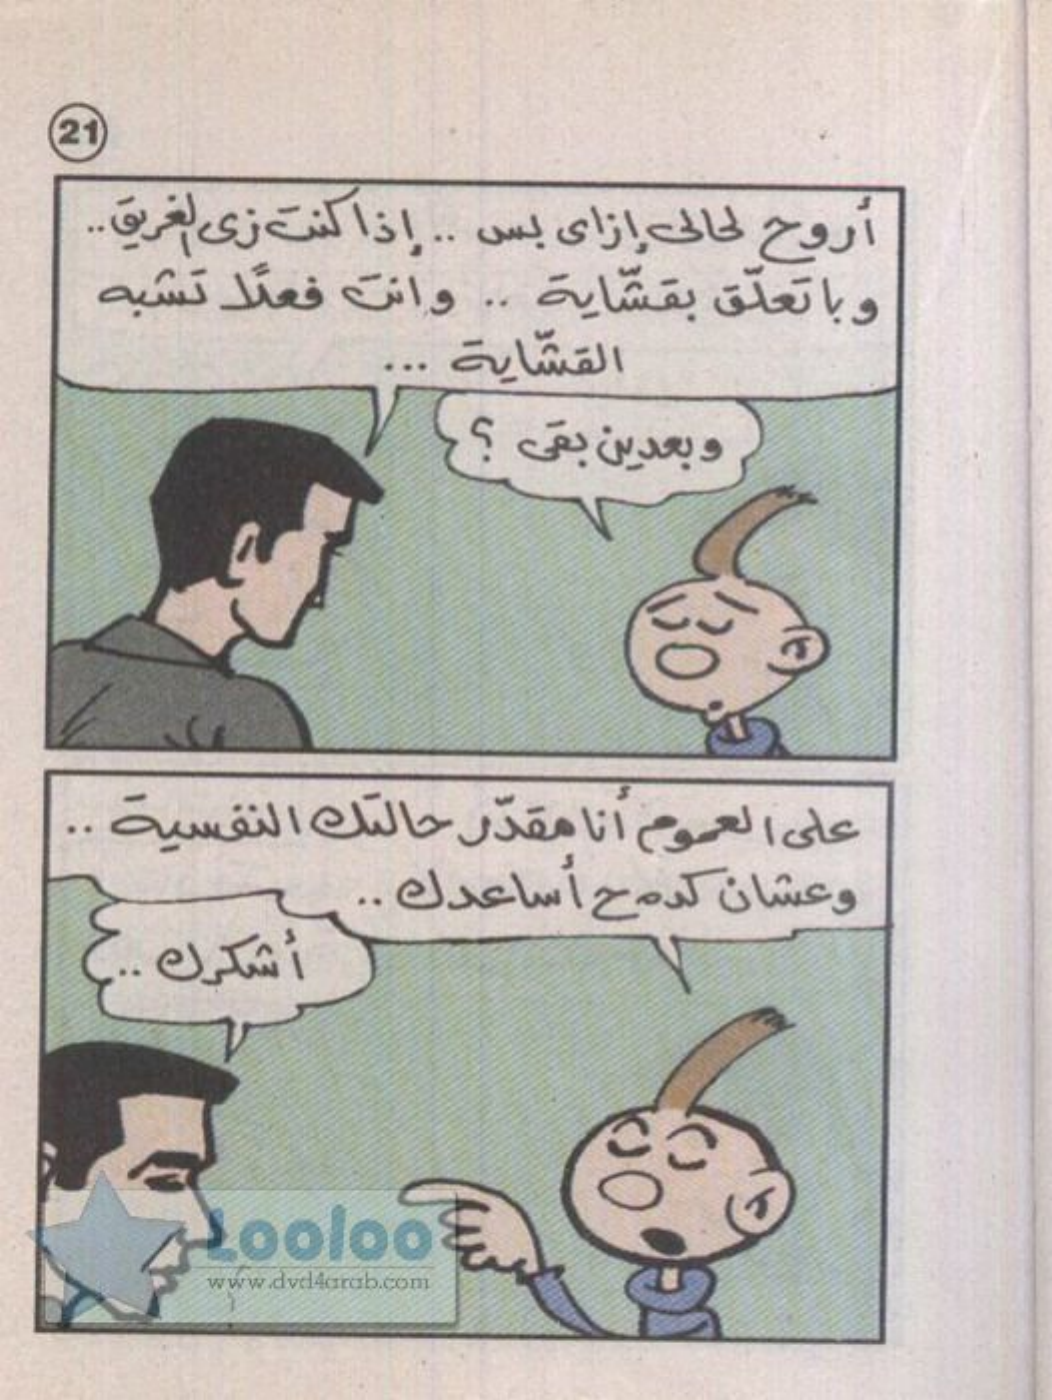 21
أروح لحالى إزاى بس .. إذا كنت زى الغريق ..
وباتعلّق بقشّاية .. وانت فعلًا تشبه
القشّاية ...
وبعدين بقى ؟
على العموم أنا مقدّر حالتك النفسية ..
وعشان كده ح أساعدك ..
أشكرك ..
Looloo
www.dvd4arab.com